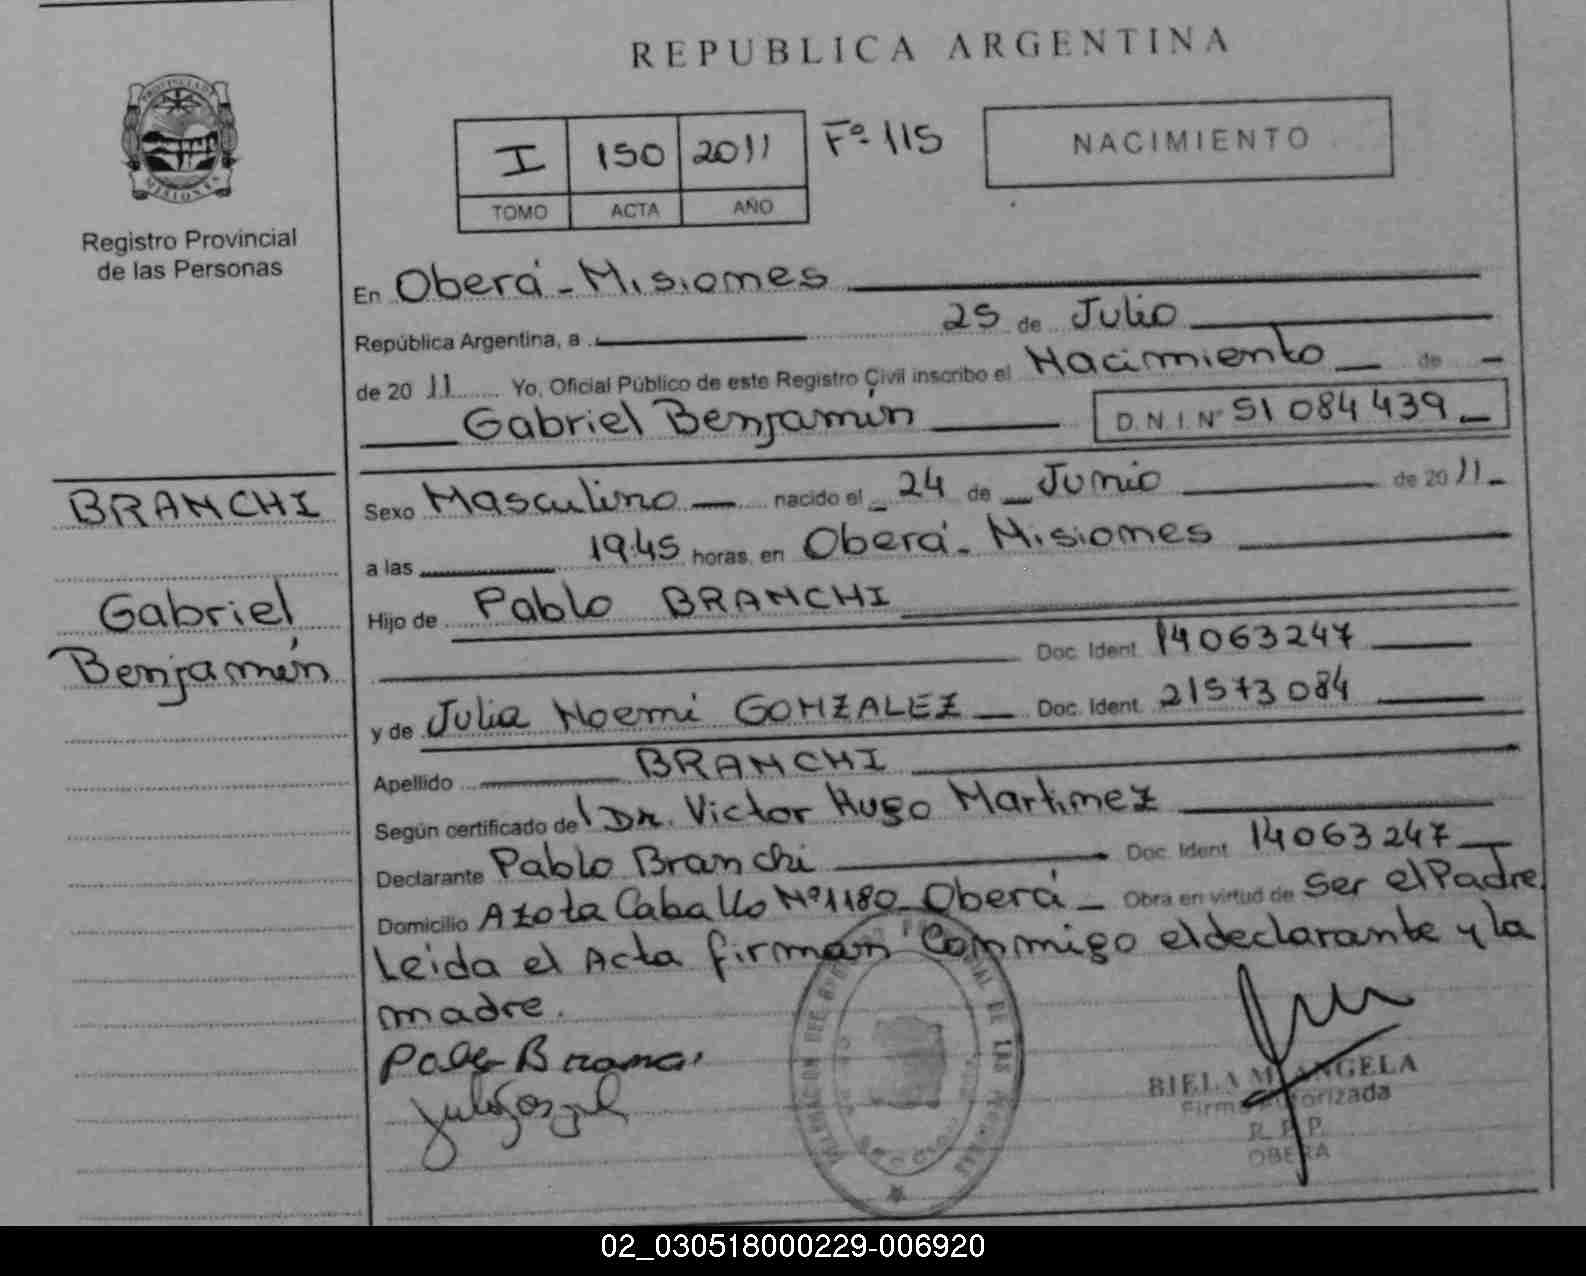 REPUBLICA ARGENTINA
PROVINCIA DE MISIONES
Registro Provincial
de las Personas
I 150 2011 Fº 115
TOMO ACTA AÑO
NACIMIENTO
En Oberá - Misiones
República Argentina, a 25 de Julio
de 2011 Yo, Oficial Público de este Registro Civil inscribo el Nacimiento de
Gabriel Benjamín D.N.I. Nº 51 084 439
BRANCHI
Gabriel
Benjamín
Sexo Masculino nacido el 24 de Junio de 2011
a las 19:45 horas, en Oberá - Misiones
Hijo de Pablo BRANCHI
Doc. Ident. 14063247
y de Julia Noemi GONZALEZ Doc. Ident. 21573084
Apellido BRANCHI
Según certificado del Dr. Victor Hugo Martinez
Declarante Pablo Branchi Doc. Ident. 14063247
Domicilio Azota Caballo Nº 1180 Oberá Obra en virtud de ser el Padre.
Leida el Acta firman conmigo el declarante y la
madre.
BIELA M. ANGELA
Firma Autorizada
R. P. P.
OBERA
02_030518000229-006920